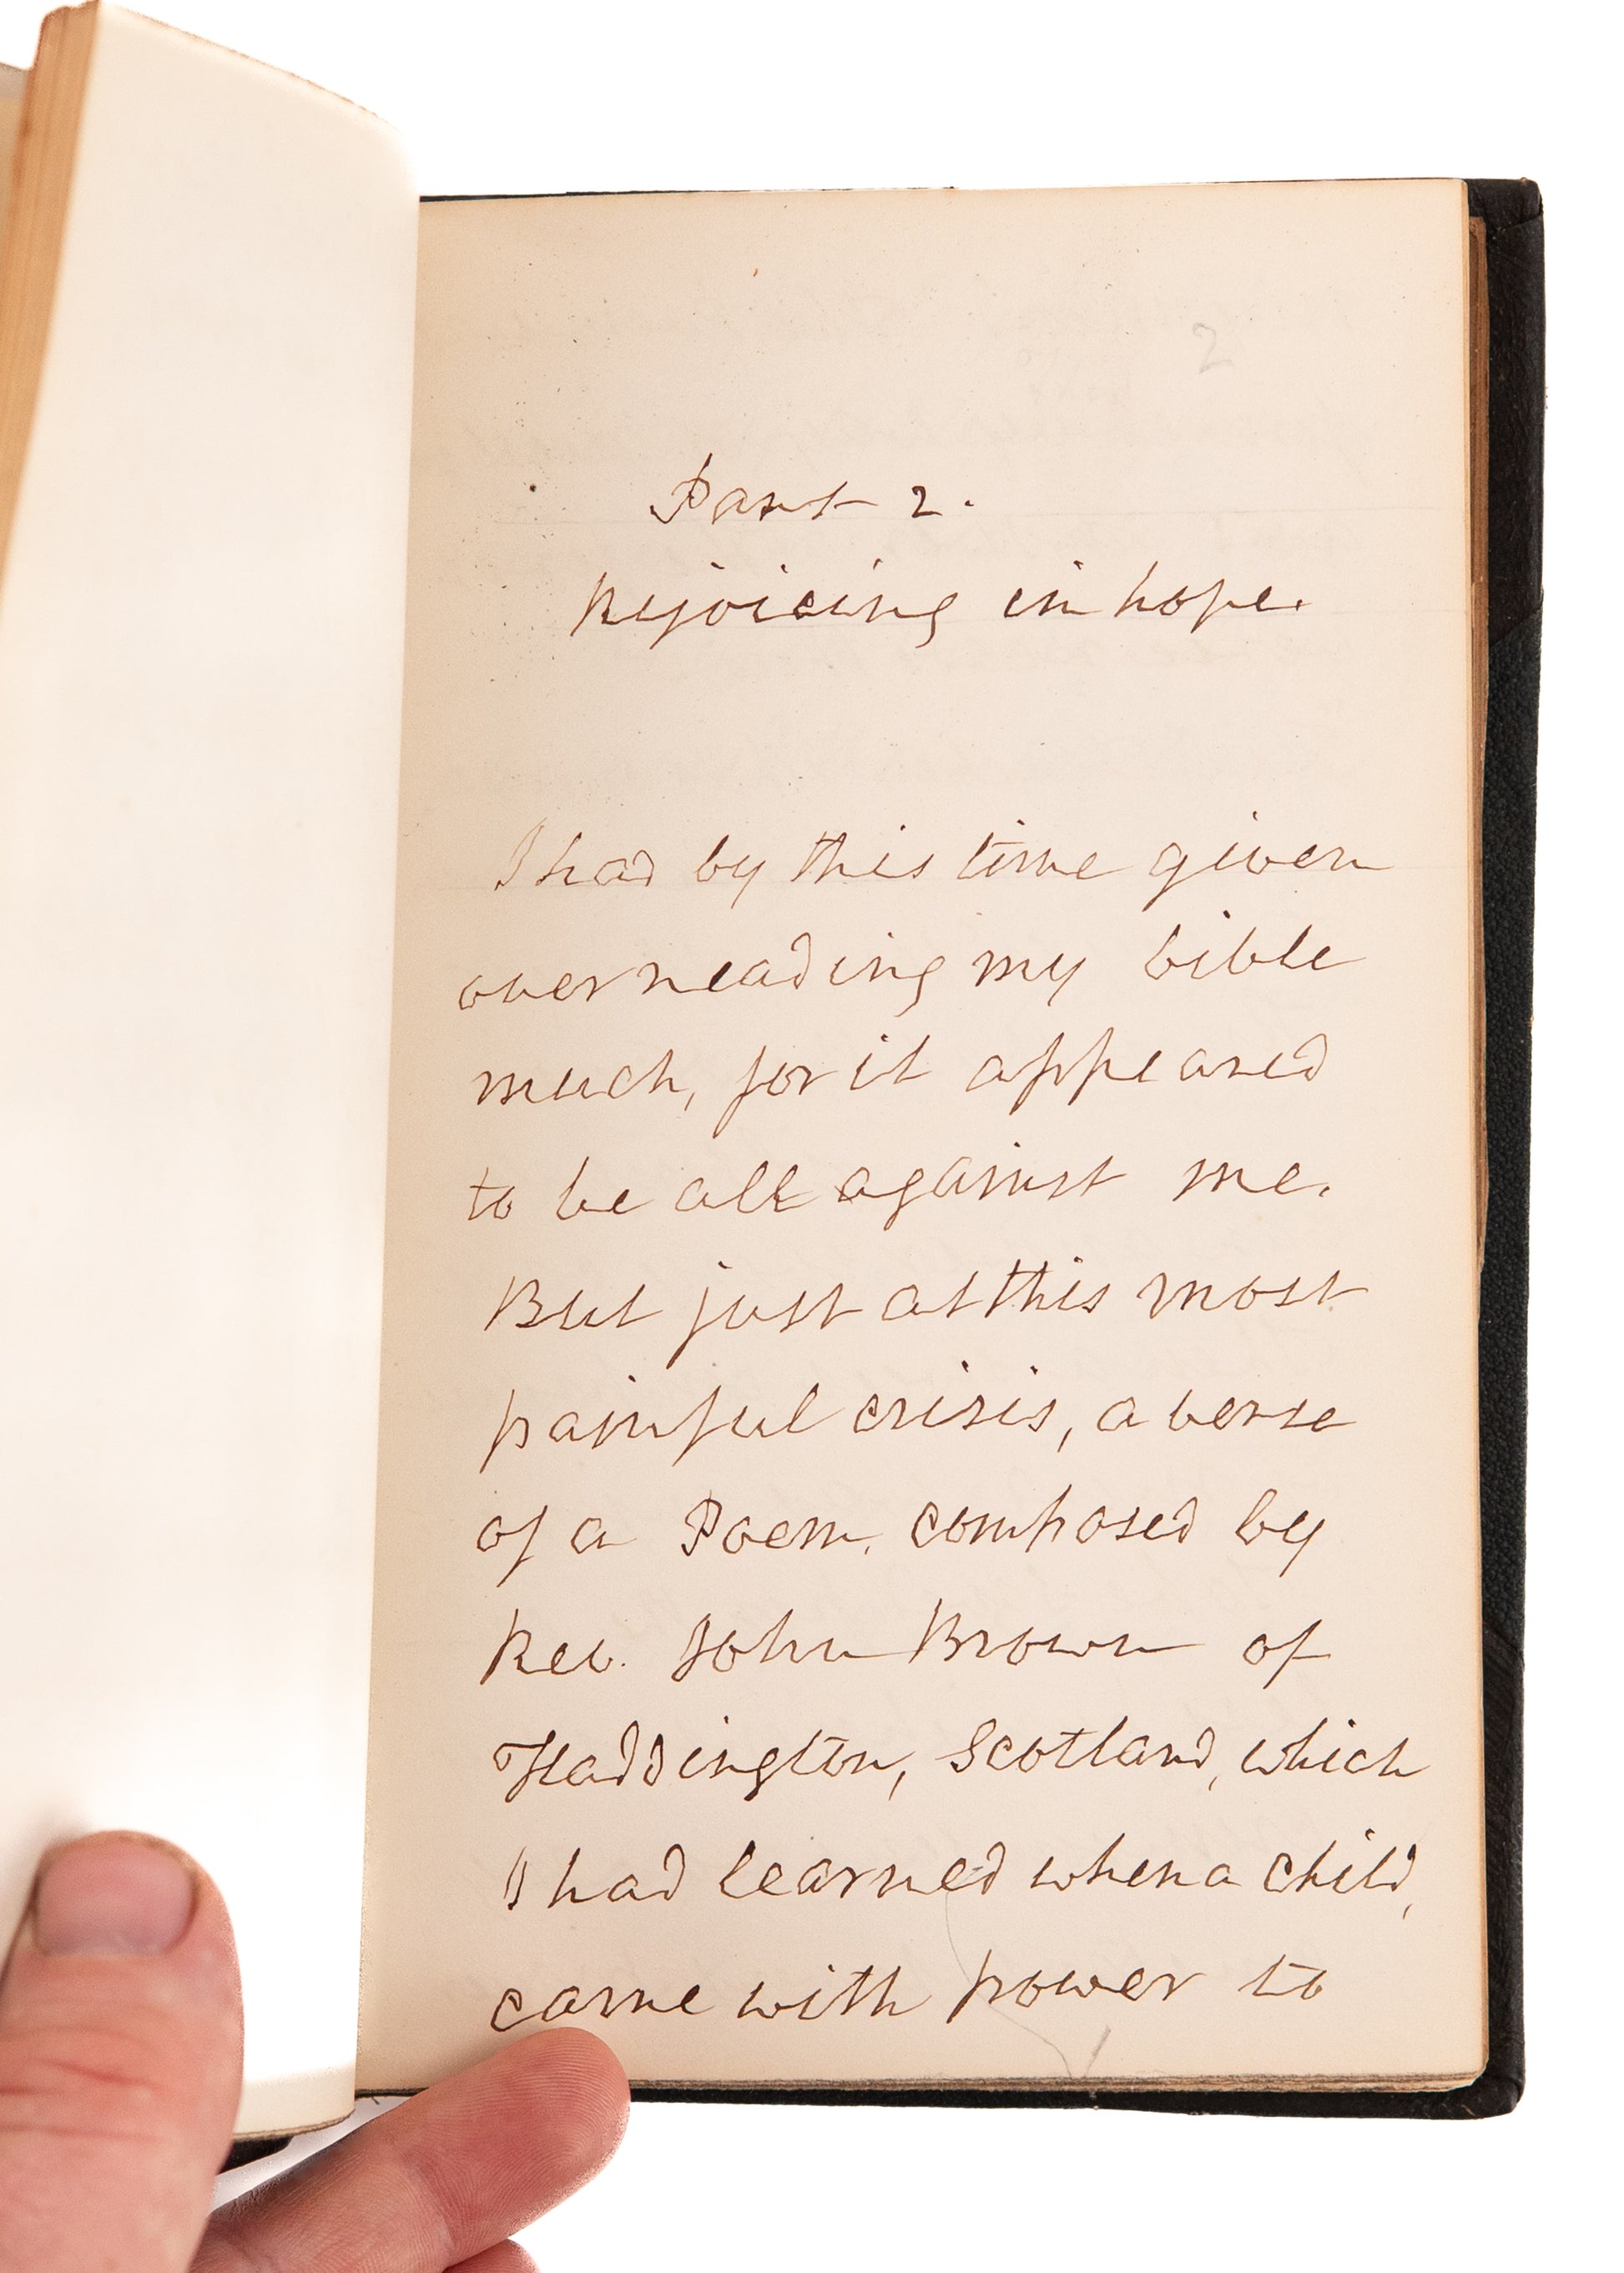 2
Part 2.
Rejoicing in hope.
I had by this time given
over reading my bible
much, for it appeared
to be all against me.
But just at this most
painful crisis, a verse
of a Poem, composed by
Rev. John Brown of
Haddington, Scotland, which
I had learned when a child,
came with power to